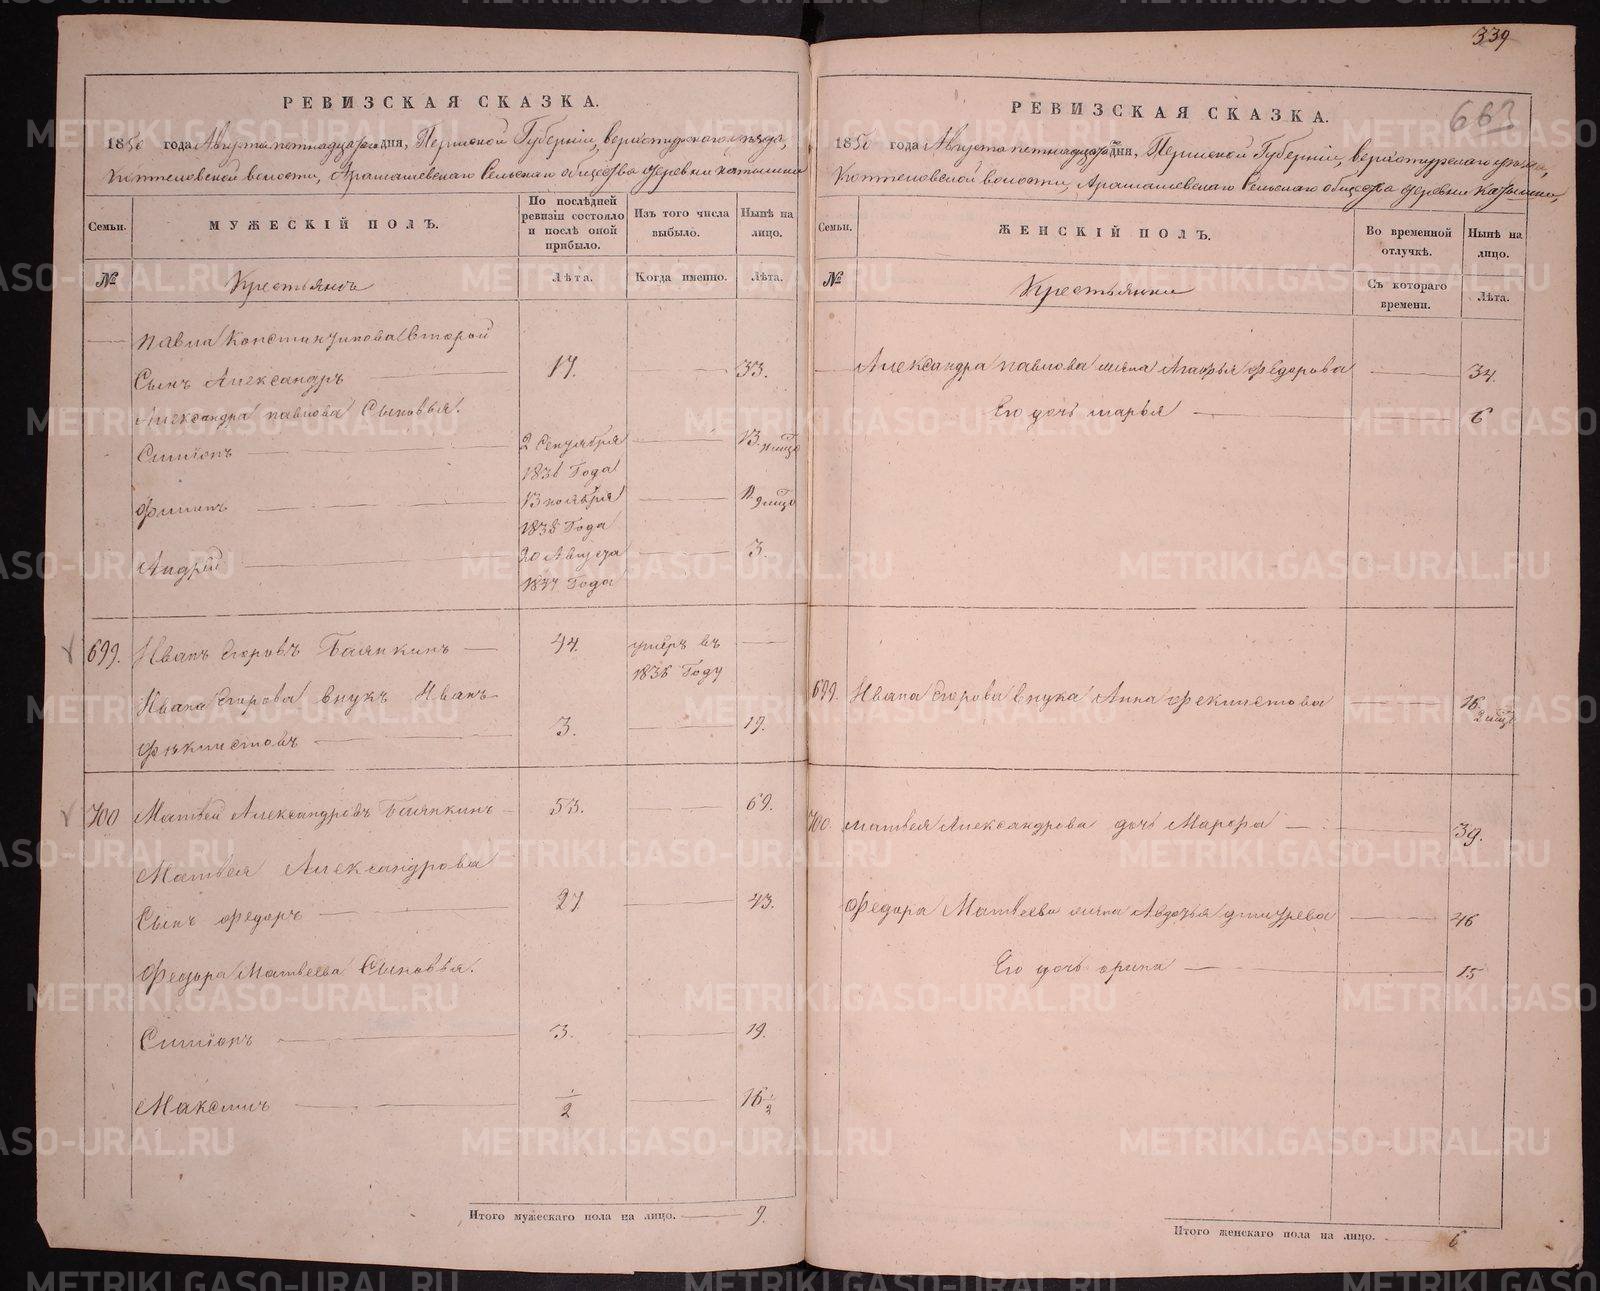 339
663
РЕВИЗСКАЯ СКАЗКА.
1850 года Августа пятнадцатаго дня, Пермской Губерніи, верхотурского уезда,
Коптеловской волости, Арамашевскаго Сельскаго общества деревни
Семьи.
МУЖЕСКІЙ ПОЛЪ.
По послѣдней ревизіи состояло и послѣ оной прибыло.
Изъ того числа выбыло.
Нынѣ на лицо.
№
Крестьянъ
Лѣта.
Когда именно.
Лѣта.
Павла Константинова второй
Сынъ Александръ 17. 33.
Александра Павлова Сыновья.
Симіонъ 2 Сентября 13.
1836 Года
Филипъ 13 ноября 11. 9 мцо
1838 Года
Андрей 20 Августа 3.
1847 Года
699. Иванъ Егоровъ Баянкинъ 44. умеръ въ
1836 Году
Ивана Егорова внукъ Иванъ
Фѣклистовъ 3. 19.
700 Матвей Александровъ Баянкинъ 53. 69.
Матвея Александрова
Сынъ Федоръ 27 43.
Федора Матвеева Сыновья.
Симіонъ 3. 19.
Максимъ 1/2 16 1/2
Итого мужескаго пола на лицо. 9.
РЕВИЗСКАЯ СКАЗКА.
1850 года Августа пятнадцатаго дня, Пермской Губерніи, верхотурскаго уезда,
Коптеловской волости, Арамашевскаго Сельскаго общества деревни
Семьи.
ЖЕНСКІЙ ПОЛЪ.
Во временной отлучкѣ.
Нынѣ на лицо.
№
Крестьянки
Съ котораго времени.
Лѣта.
Александра Павлова жена Агафья Федорова 34.
Его дочь Марья 6
699. Ивана Егорова внука Анна Феклистова 16. 2 мцо
700. Матвея Александрова дочь Марфа 39.
Федора Матвеева жена Авдотья Дмитрева 46
Его дочь Орина 15
Итого женскаго пола на лицо. 6
METRIKI.GASO-URAL.RU